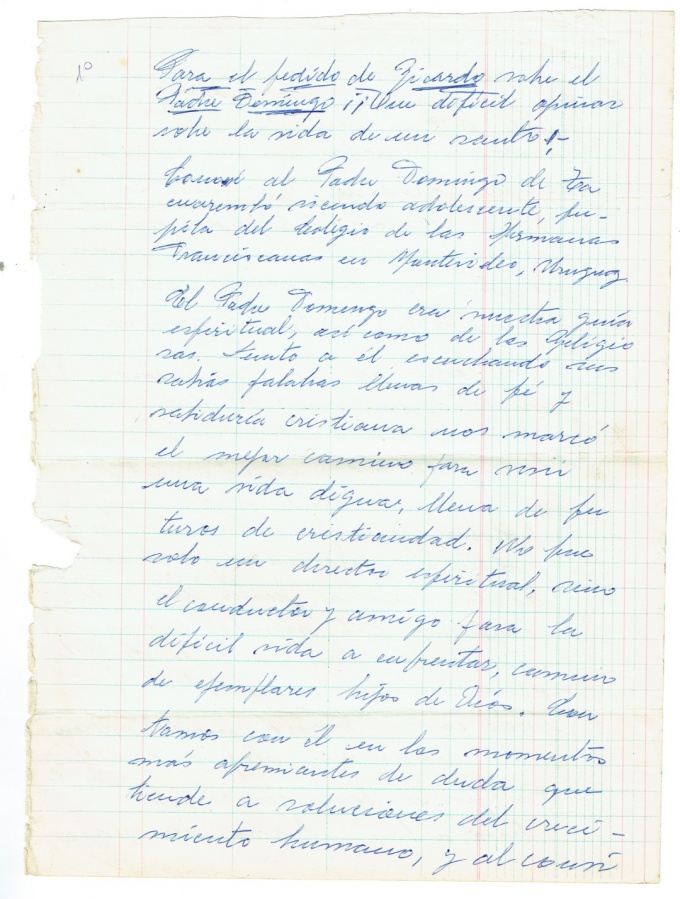 1º
Para el pedido de Ricardo sobre el
Padre Domingo ¡¡Que difícil opinar
sobre la vida de un santo!-
Conocí al Padre Domingo de Ta
cuarembó siendo adolescente, pu-
pila del Colegio de las Hermanas
Franciscanas en Montevideo, Uruguay
El Padre Domingo era nuestra guía
espiritual, así como de las Religio
sas. Junto a él escuchando sus
sabias palabras llenas de fé y
sabiduría cristiana nos marcó
el mejor camino para vivir
una vida digna, llena de fu
turos de cristiandad. No fue
solo un director espiritual, sino
el conductor y amigo para la
difícil vida a enfrentar, camino
de ejemplares hijos de Dios. Con
tamos con él en los momentos
más apremiantes de duda que
tiende a soluciones del creci-
miento humano, y al consi